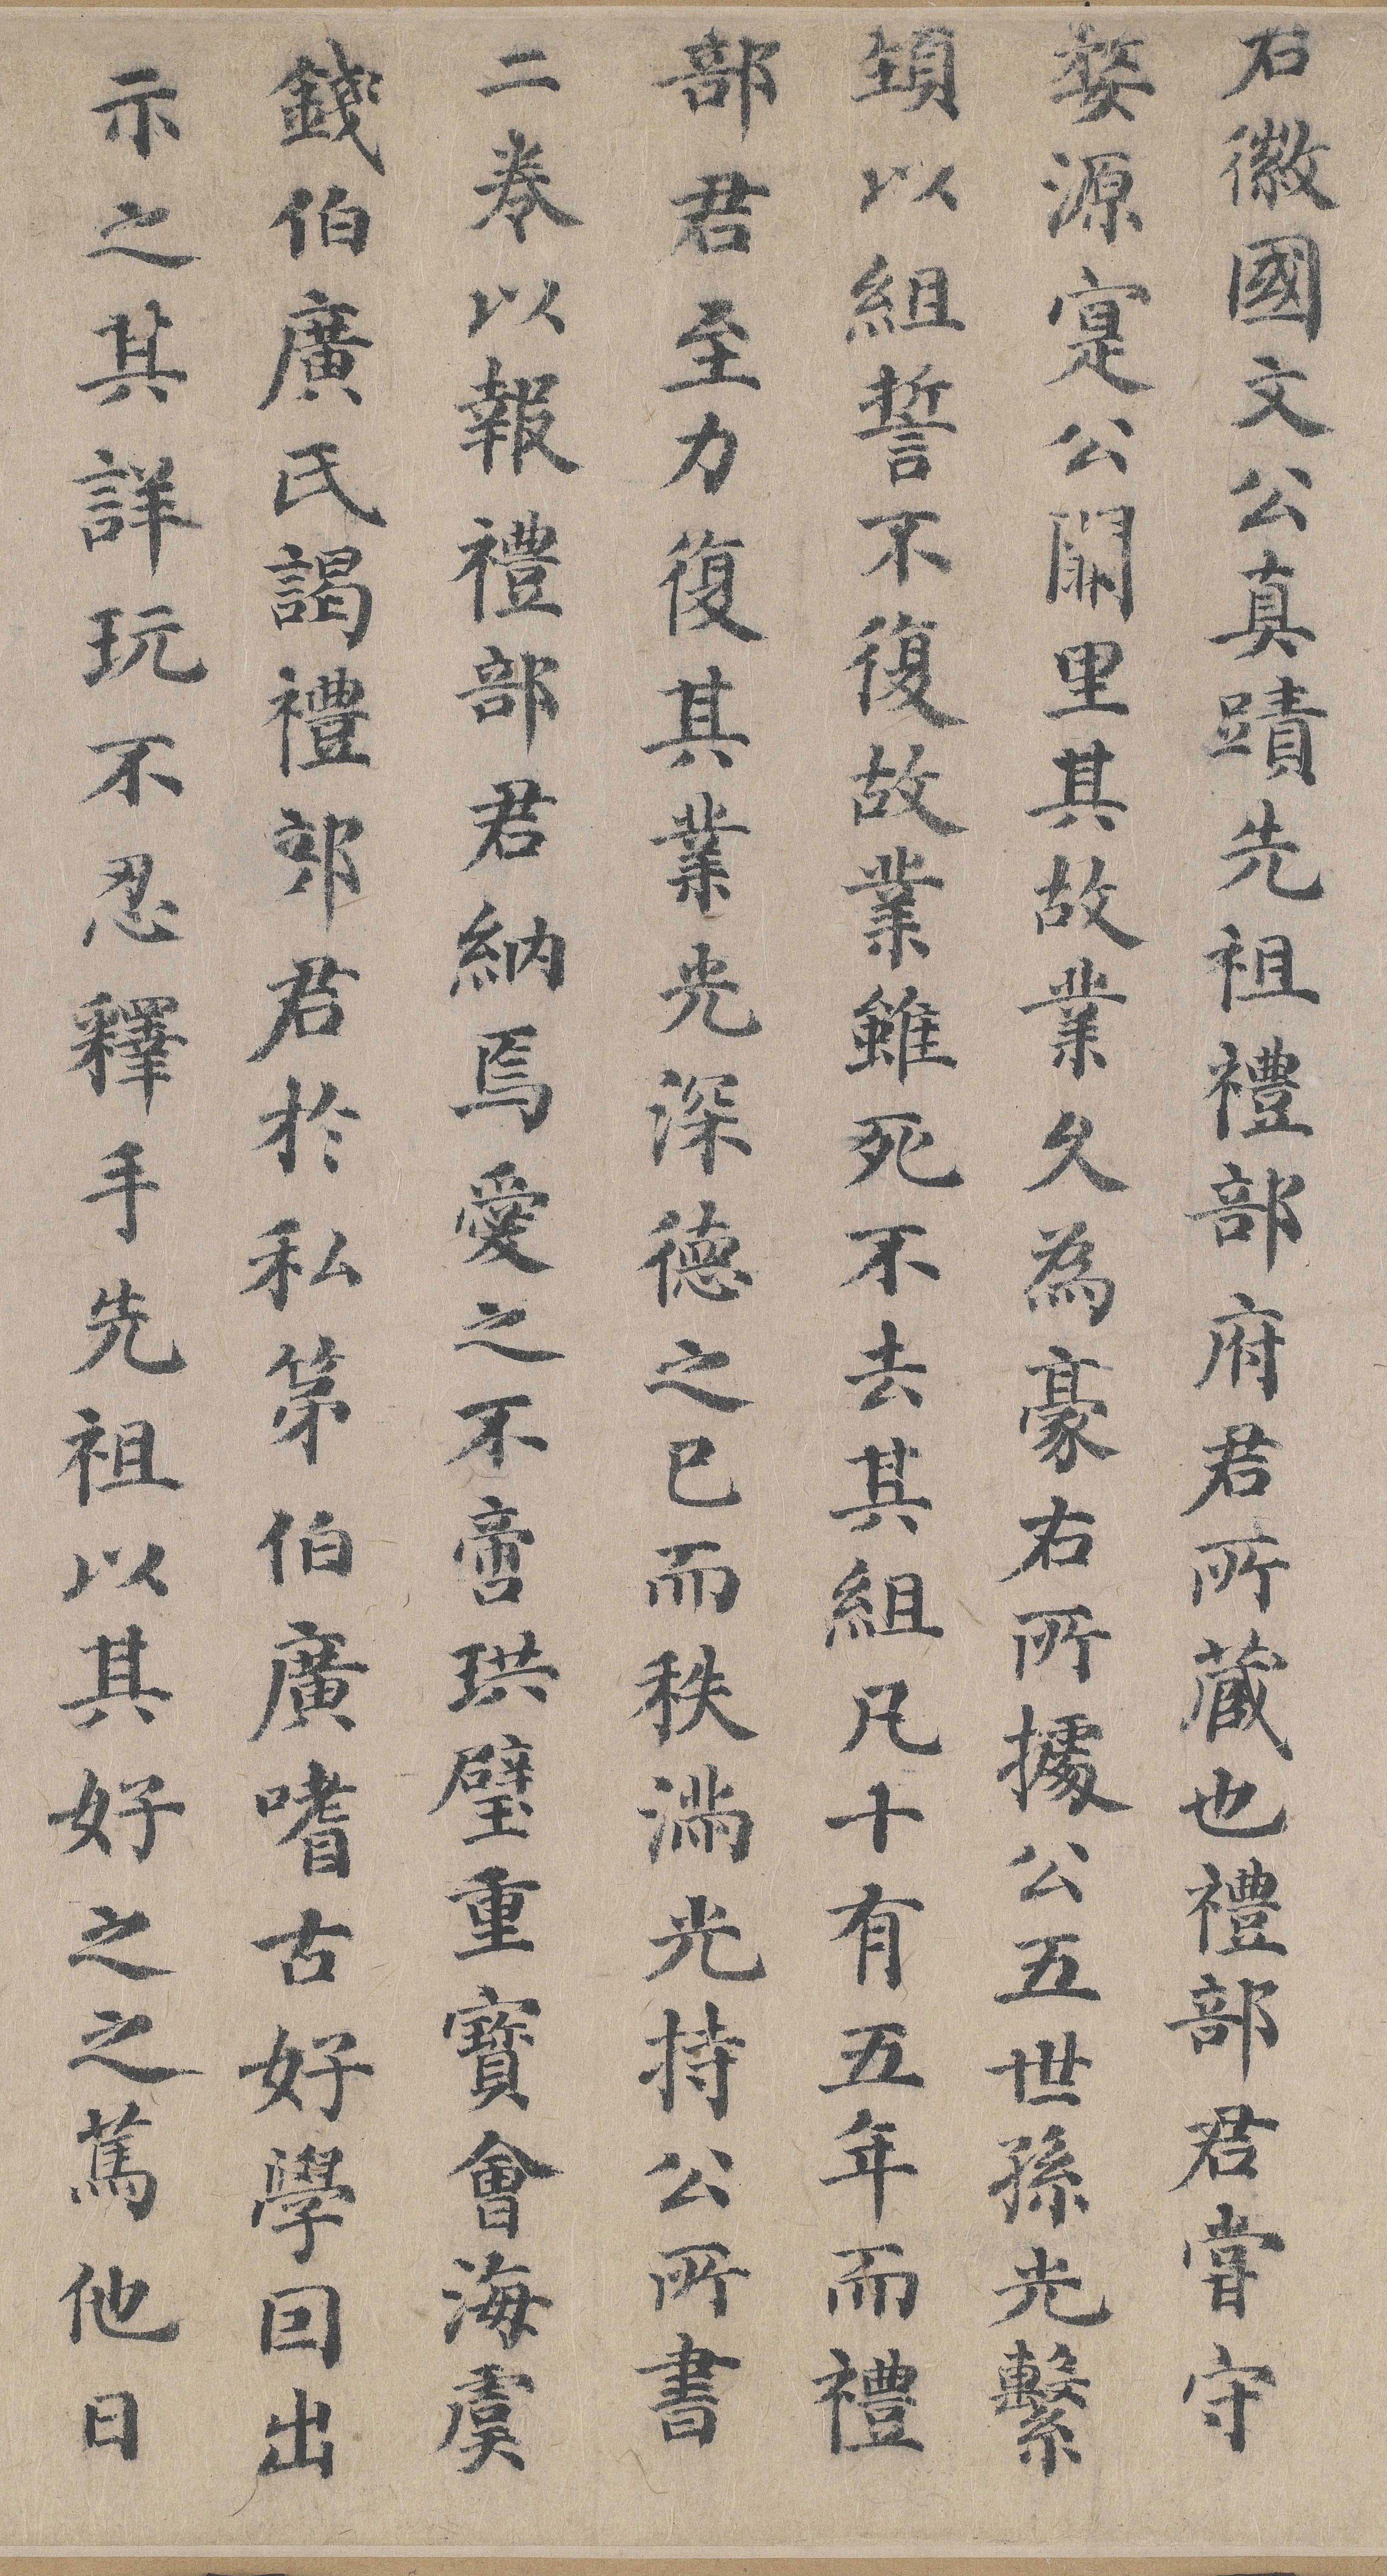 右徽國文公真蹟先祖禮部府君所蔵也禮部君嘗守
婺源寔公闕里其故業久為豪右所據公五世孫光繫
頸以組誓不復故業雖死不去其組凡十有五年而禮
部君至力復其業光深德之已而秩滿光持公所書
二卷以報禮部君納焉愛之不啻珙璧重寶會海虞
錢伯廣氏謁禮部君於私第伯廣嗜古好學回出
示之其詳玩不忍釋手先祖以其好之之篤他日